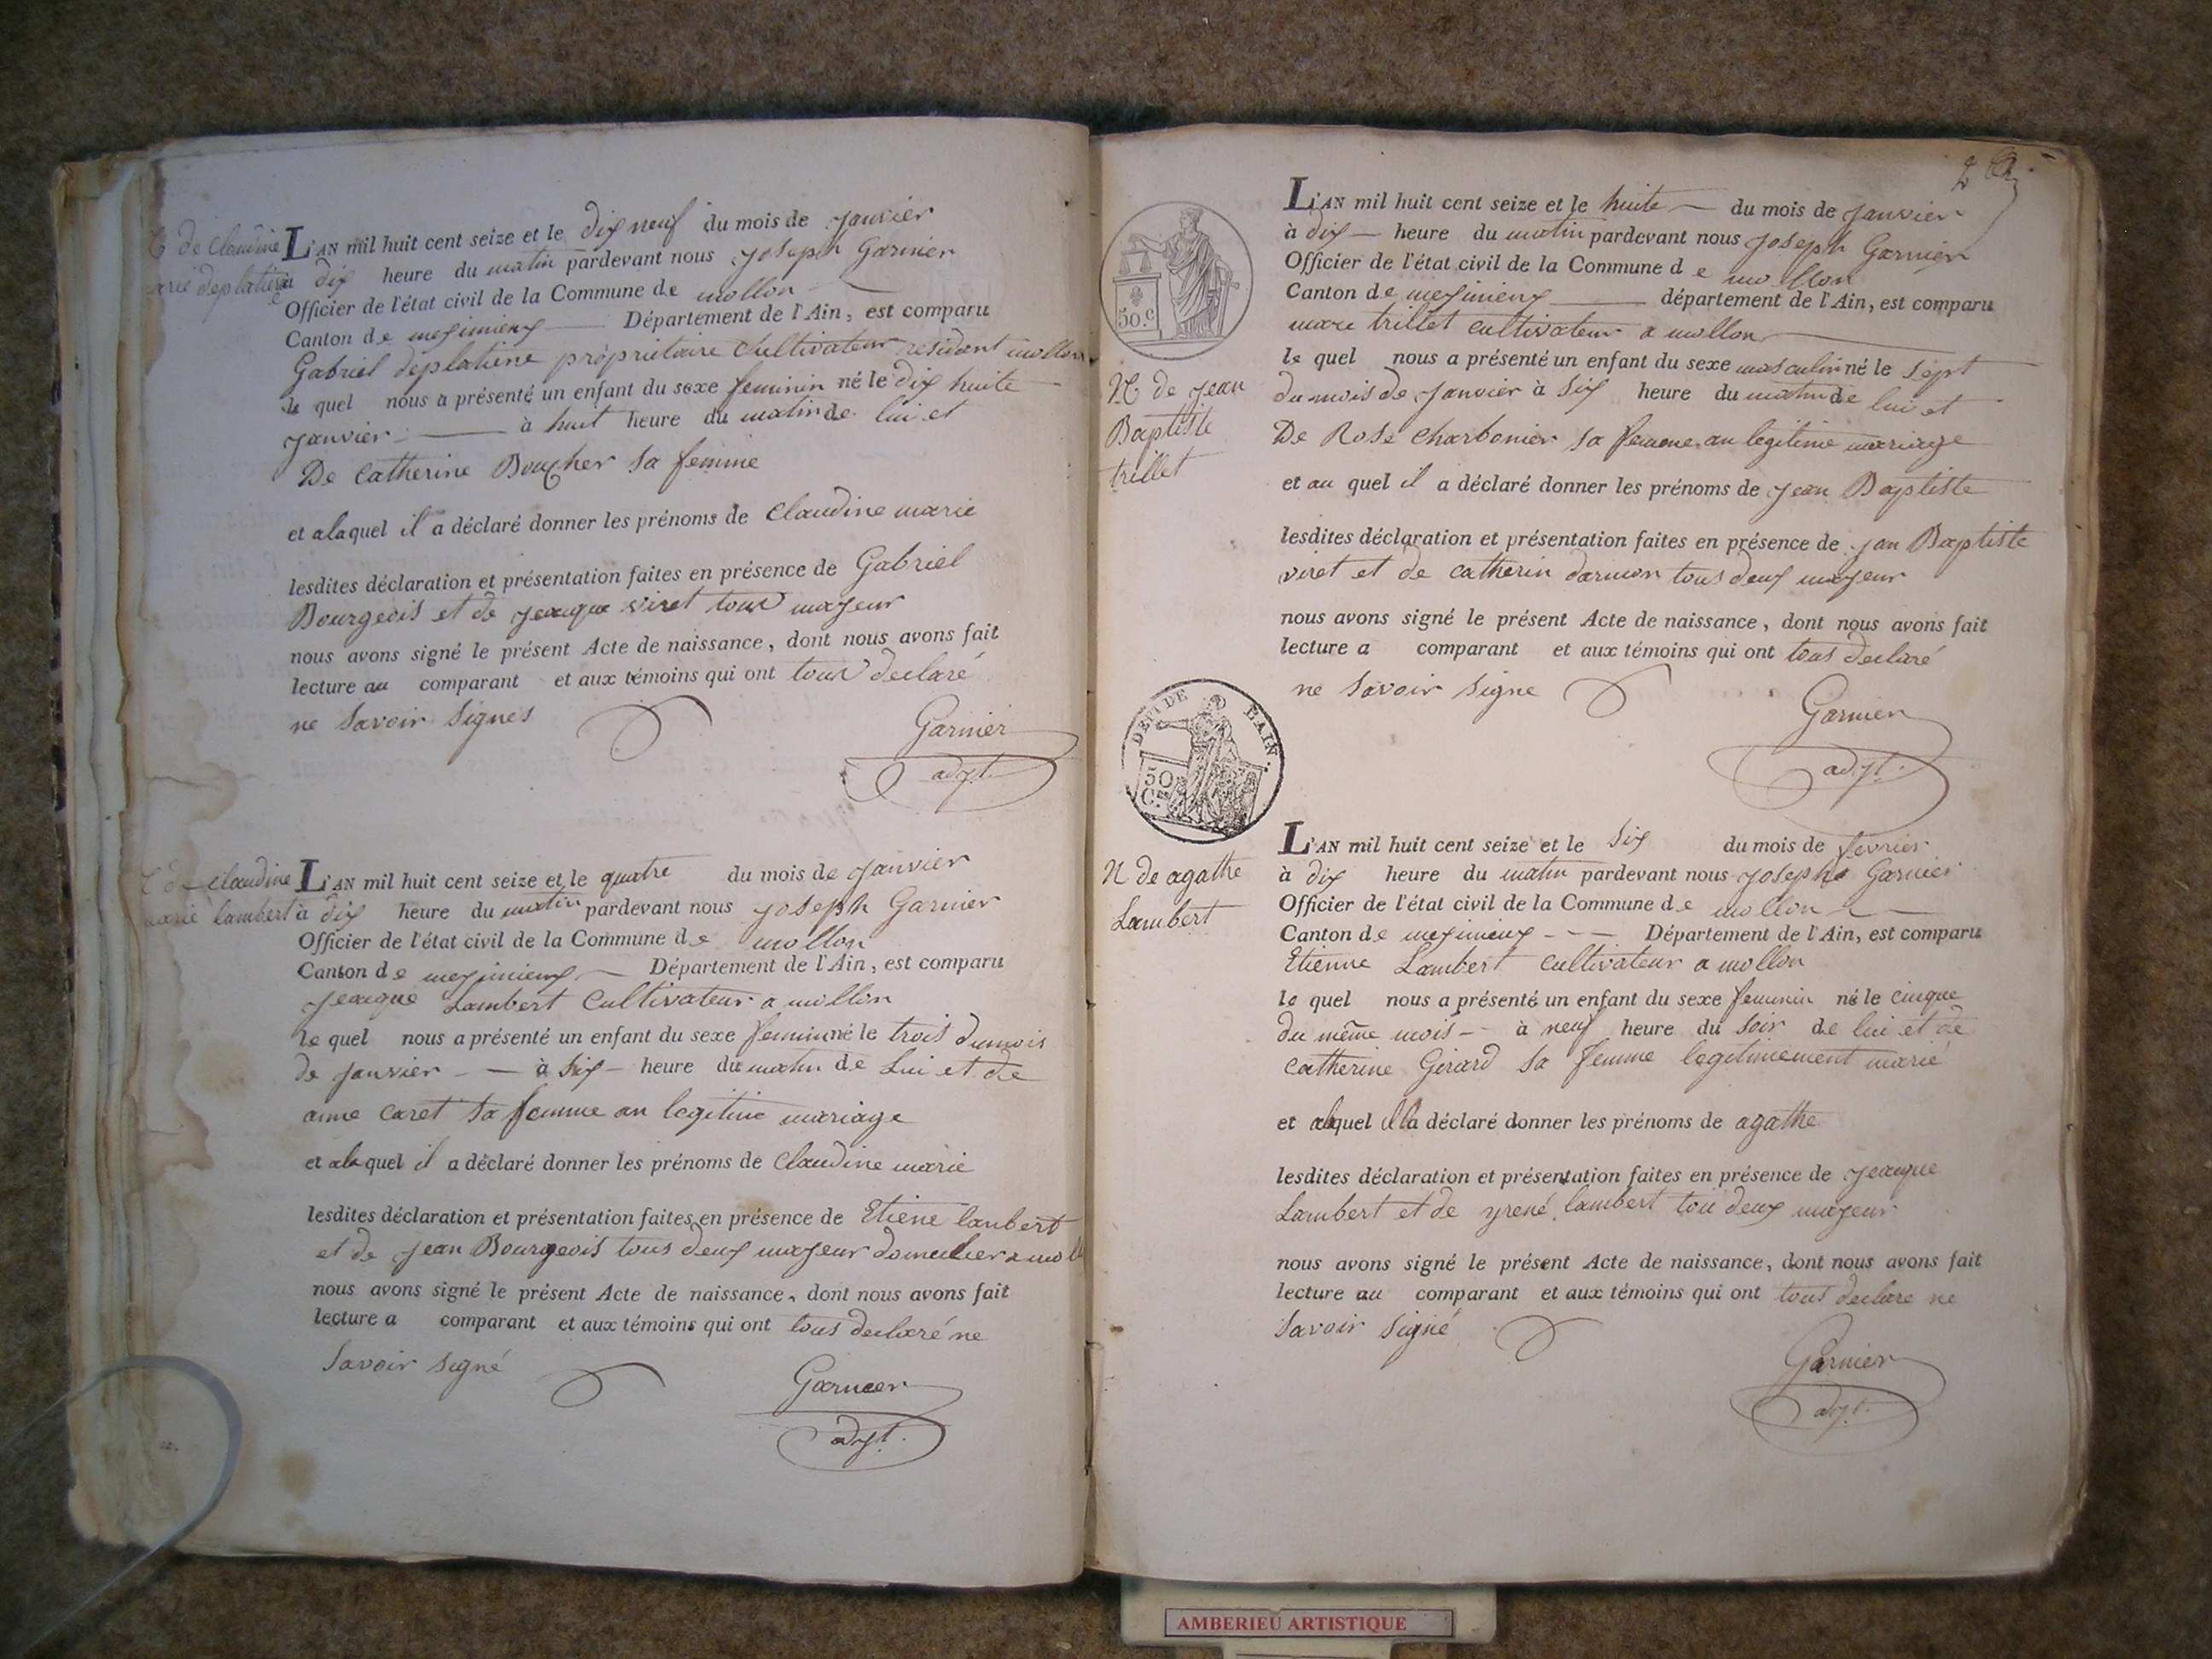 de Claudine
marie deplatiène
L'AN mil huit cent seize et le dix neuf du mois de janvier
a dix heure du matin pardevant nous joseph Garnier
Officier de l'état civil de la Commune de mollon
Canton de meximieux Département de l'Ain, est comparu
Gabriel deplatiene proprietaire Cultivateur residant mollon
le quel nous a présenté un enfant du sexe feminin né le dix huite
janvier à huit heure du matin de lui et
De Catherine Boucher sa femme
et alaquel il a déclaré donner les prénoms de Claudine marie
lesdites déclaration et présentation faites en présence de Gabriel
Bourgeois et de jeacque viret tous majeur
nous avons signé le présent Acte de naissance, dont nous avons fait
lecture au comparant et aux témoins qui ont tous declaré
ne Savoir Signés
Garnier
adjt.
de Claudine
marie lambert
L'AN mil huit cent seize et le quatre du mois de janvier
à dix heure du matin pardevant nous joseph Garnier
Officier de l'état civil de la Commune de mollon
Canton de meximieux Département de l'Ain, est comparu
jeacque Lambert Cultivateur a mollon
le quel nous a présenté un enfant du sexe feminin né le trois du mois
de janvier à six heure du matin de Lui et de
anne caret sa femme an legitime mariage
et alaquel il a déclaré donner les prénoms de Claudine marie
lesdites déclaration et présentation faites en présence de Etiene lanbert
et de jean Bourgeois tous deux majeur domicilier a moll
nous avons signé le présent Acte de naissance, dont nous avons fait
lecture a comparant et aux témoins qui ont tous declaré ne
Savoir signé
Garnier
adjt.
2
50.C
L'AN mil huit cent seize et le huite du mois de janvier
à dix heure du matin pardevant nous joseph Garnier
Officier de l'état civil de la Commune de mollon
Canton de meximieux département de l'Ain, est comparu
marc trillet cultivateur a mollon
le quel nous a présenté un enfant du sexe masculin né le sept
du mois de janvier à six heure du matin de lui et
De Rose Charbonier sa femme an legitime mariage
N de jean
Baptiste
trillet
et au quel il a déclaré donner les prénoms de jean Baptiste
lesdites déclaration et présentation faites en présence de jan Baptiste
viret et de catherin darmon tous deux majeur
nous avons signé le présent Acte de naissance, dont nous avons fait
lecture a comparant et aux témoins qui ont tous declaré
ne Savoir signe
Garnier
adjt.
DEP. DE L'AIN.
50 Ces
N de agathe
Lambert
L'AN mil huit cent seize et le Six du mois de fevrier
à dix heure du matin pardevant nous joseph Garnier
Officier de l'état civil de la Commune de mollon
Canton de meximieux Département de l'Ain, est comparu
Etienne Lambert cultivateur a mollon
le quel nous a présenté un enfant du sexe feminin né le cinque
du même mois à neuf heure du Soir de lui et de
catherine Girard sa femme legitimement marié
et alaquel il a déclaré donner les prénoms de agathe
lesdites déclaration et présentation faites en présence de jeacque
Lambert et de yrené lambert tou deux majeur
nous avons signé le présent Acte de naissance, dont nous avons fait
lecture au comparant et aux témoins qui ont tous declare ne
Savoir signé
Garnier
adjt.
AMBERIEU ARTISTIQUE